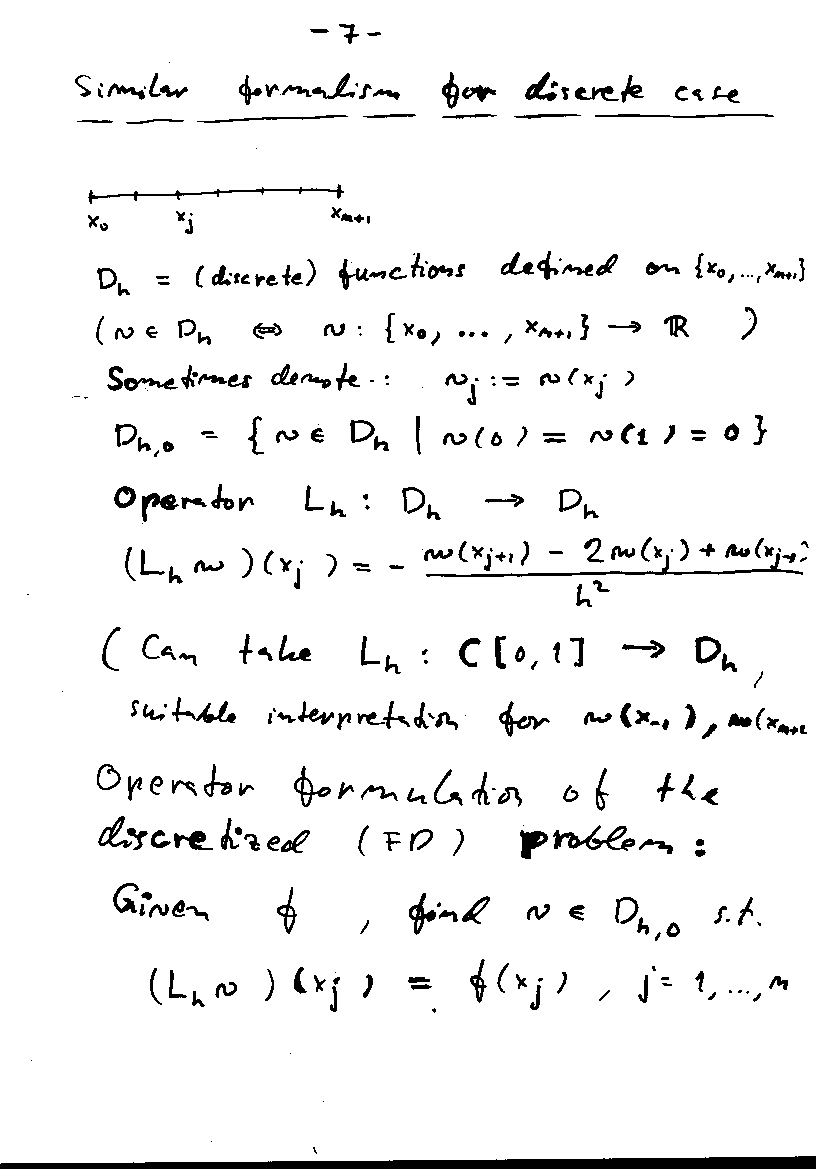 - 7 -
Similar formalism for discrete case
x₀ xⱼ xₙ₊₁
Dₕ = (discrete) functions defined on {x₀, ..., xₙ₊₁}
(v ∈ Dₕ ⇔ v : {x₀, ..., xₙ₊₁} → ℝ )
Sometimes denote : vⱼ := v(xⱼ)
Dₕ,₀ = { v ∈ Dₕ | v(0) = v(1) = 0 }
Operator Lₕ : Dₕ → Dₕ
(Lₕ w)(xⱼ) = - (w(xⱼ₊₁) - 2w(xⱼ) + w(xⱼ₋₁)) / h²
(Can take Lₕ : C[0,1] → Dₕ,
suitable interpretation for w(x₋₁), w(xₙ₊₂
Operator formulation of the
discretized (FD) problem :
Given f , find v ∈ Dₕ,₀ s.t.
(Lₕ v)(xⱼ) = f(xⱼ) , j = 1, ..., n